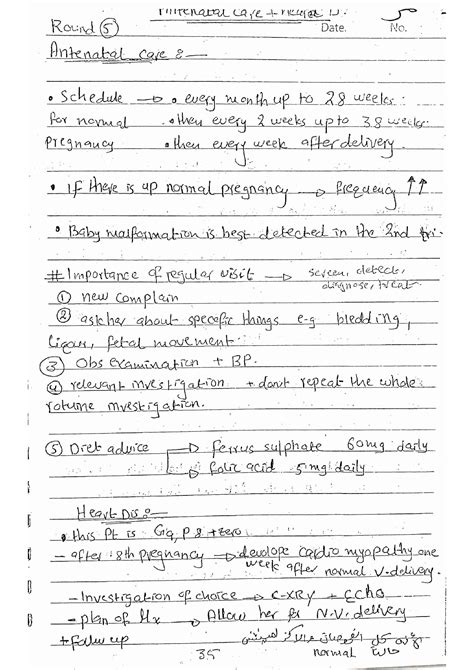 Antenatal care + Heart D.
Round 5 Date. No. 5
Antenatal care :-
• Schedule → • every month up to 28 weeks.
for normal • then every 2 weeks up to 38 weeks
pregnancy • then every week after delivery.
• If there is up normal pregnancy → frequency ↑↑
• Baby malformation is best detected in the 2nd tri.
# Importance of regular visit → screen, detect,
diagnose, treat
① new complain
② ask her about specefic things e-g bledding,
liqur, fetal movement.
③ Obs examination + BP.
④ relevant investigation + dont repeat the whole
rotume investigation.
⑤ Diet advice → Ferrus sulphate 60mg daily
→ folic acid 5 mg daily
Heart Dis :-
• this Pt is G9, P 8 + zero
- after 8th pregnancy → develope cardio myopathy one
week after normal V-delivery.
- Investigation of choice → C-XRY + Echo
- plan of Mx → Allow her for N.V. delivery
+ follow up
35 normal